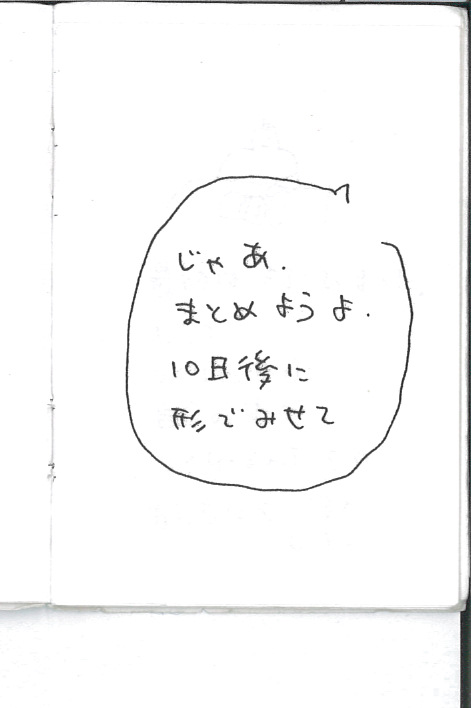 じゃあ.
まとめようよ.
10日後に
形でみせて